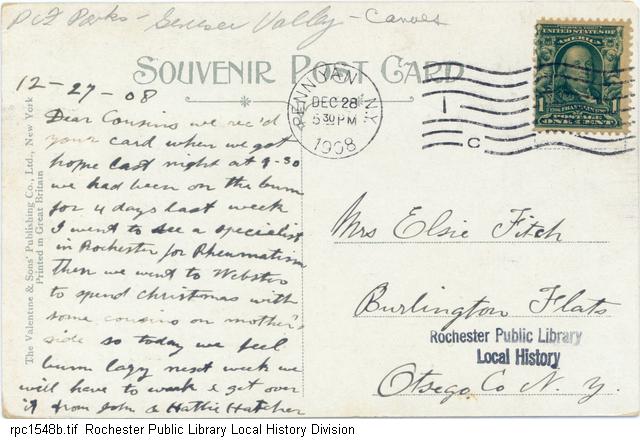 Parks - Genesee Valley - Canoes
SOUVENIR POST CARD
12-27-08
Dear Cousins we rec'd
your card when we got
home last night at 9-30
we had been on the bum
for 4 days last week
I went to see a specialist
in Rochester for Rheumatism
then we went to Webster
to spend Christmas with
some cousins on mother's
side so today we feel
bum lazy next week we
will have to work & get over
it from John & Hattie Hatcher
The Valentine & Sons' Publishing Co., Ltd., New York
Printed in Great Britain
PENN YAN, N.Y.
DEC 28
5 30 PM
1908
1
C
UNITED STATES OF
AMERICA
1
FRANKLIN
POSTAGE
ONE CENT
Mrs Elsie Fitch
Burlington Flats
Rochester Public Library
Local History
Otsego Co N. Y.
rpc1548b.tif Rochester Public Library Local History Division